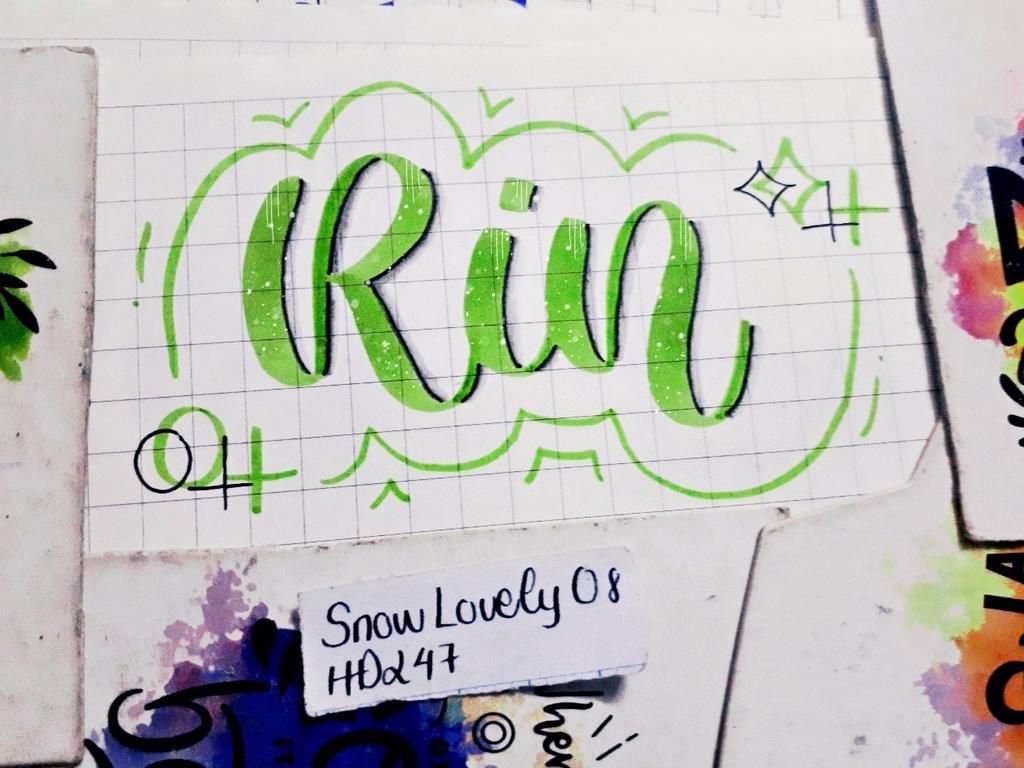 Rin
Snow Lovely 08
HD247
her